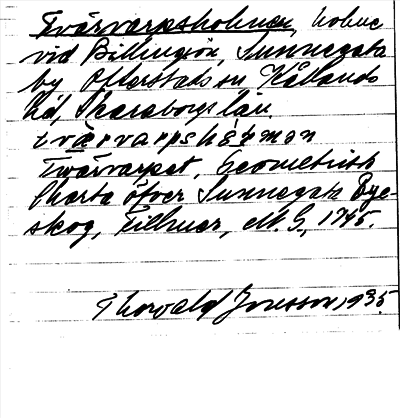 Tvärvarpsholmen, holme
vid Billingsön, Sunnegata
by Otterstads sn Kållands
hd, Skaraborgs län.
Tvärvarpet, Geometrisk
Charta öfver Sunnegata Bye-
skog, Fillmer, M. G., 1745.
Thorvald Jonsson, 1935